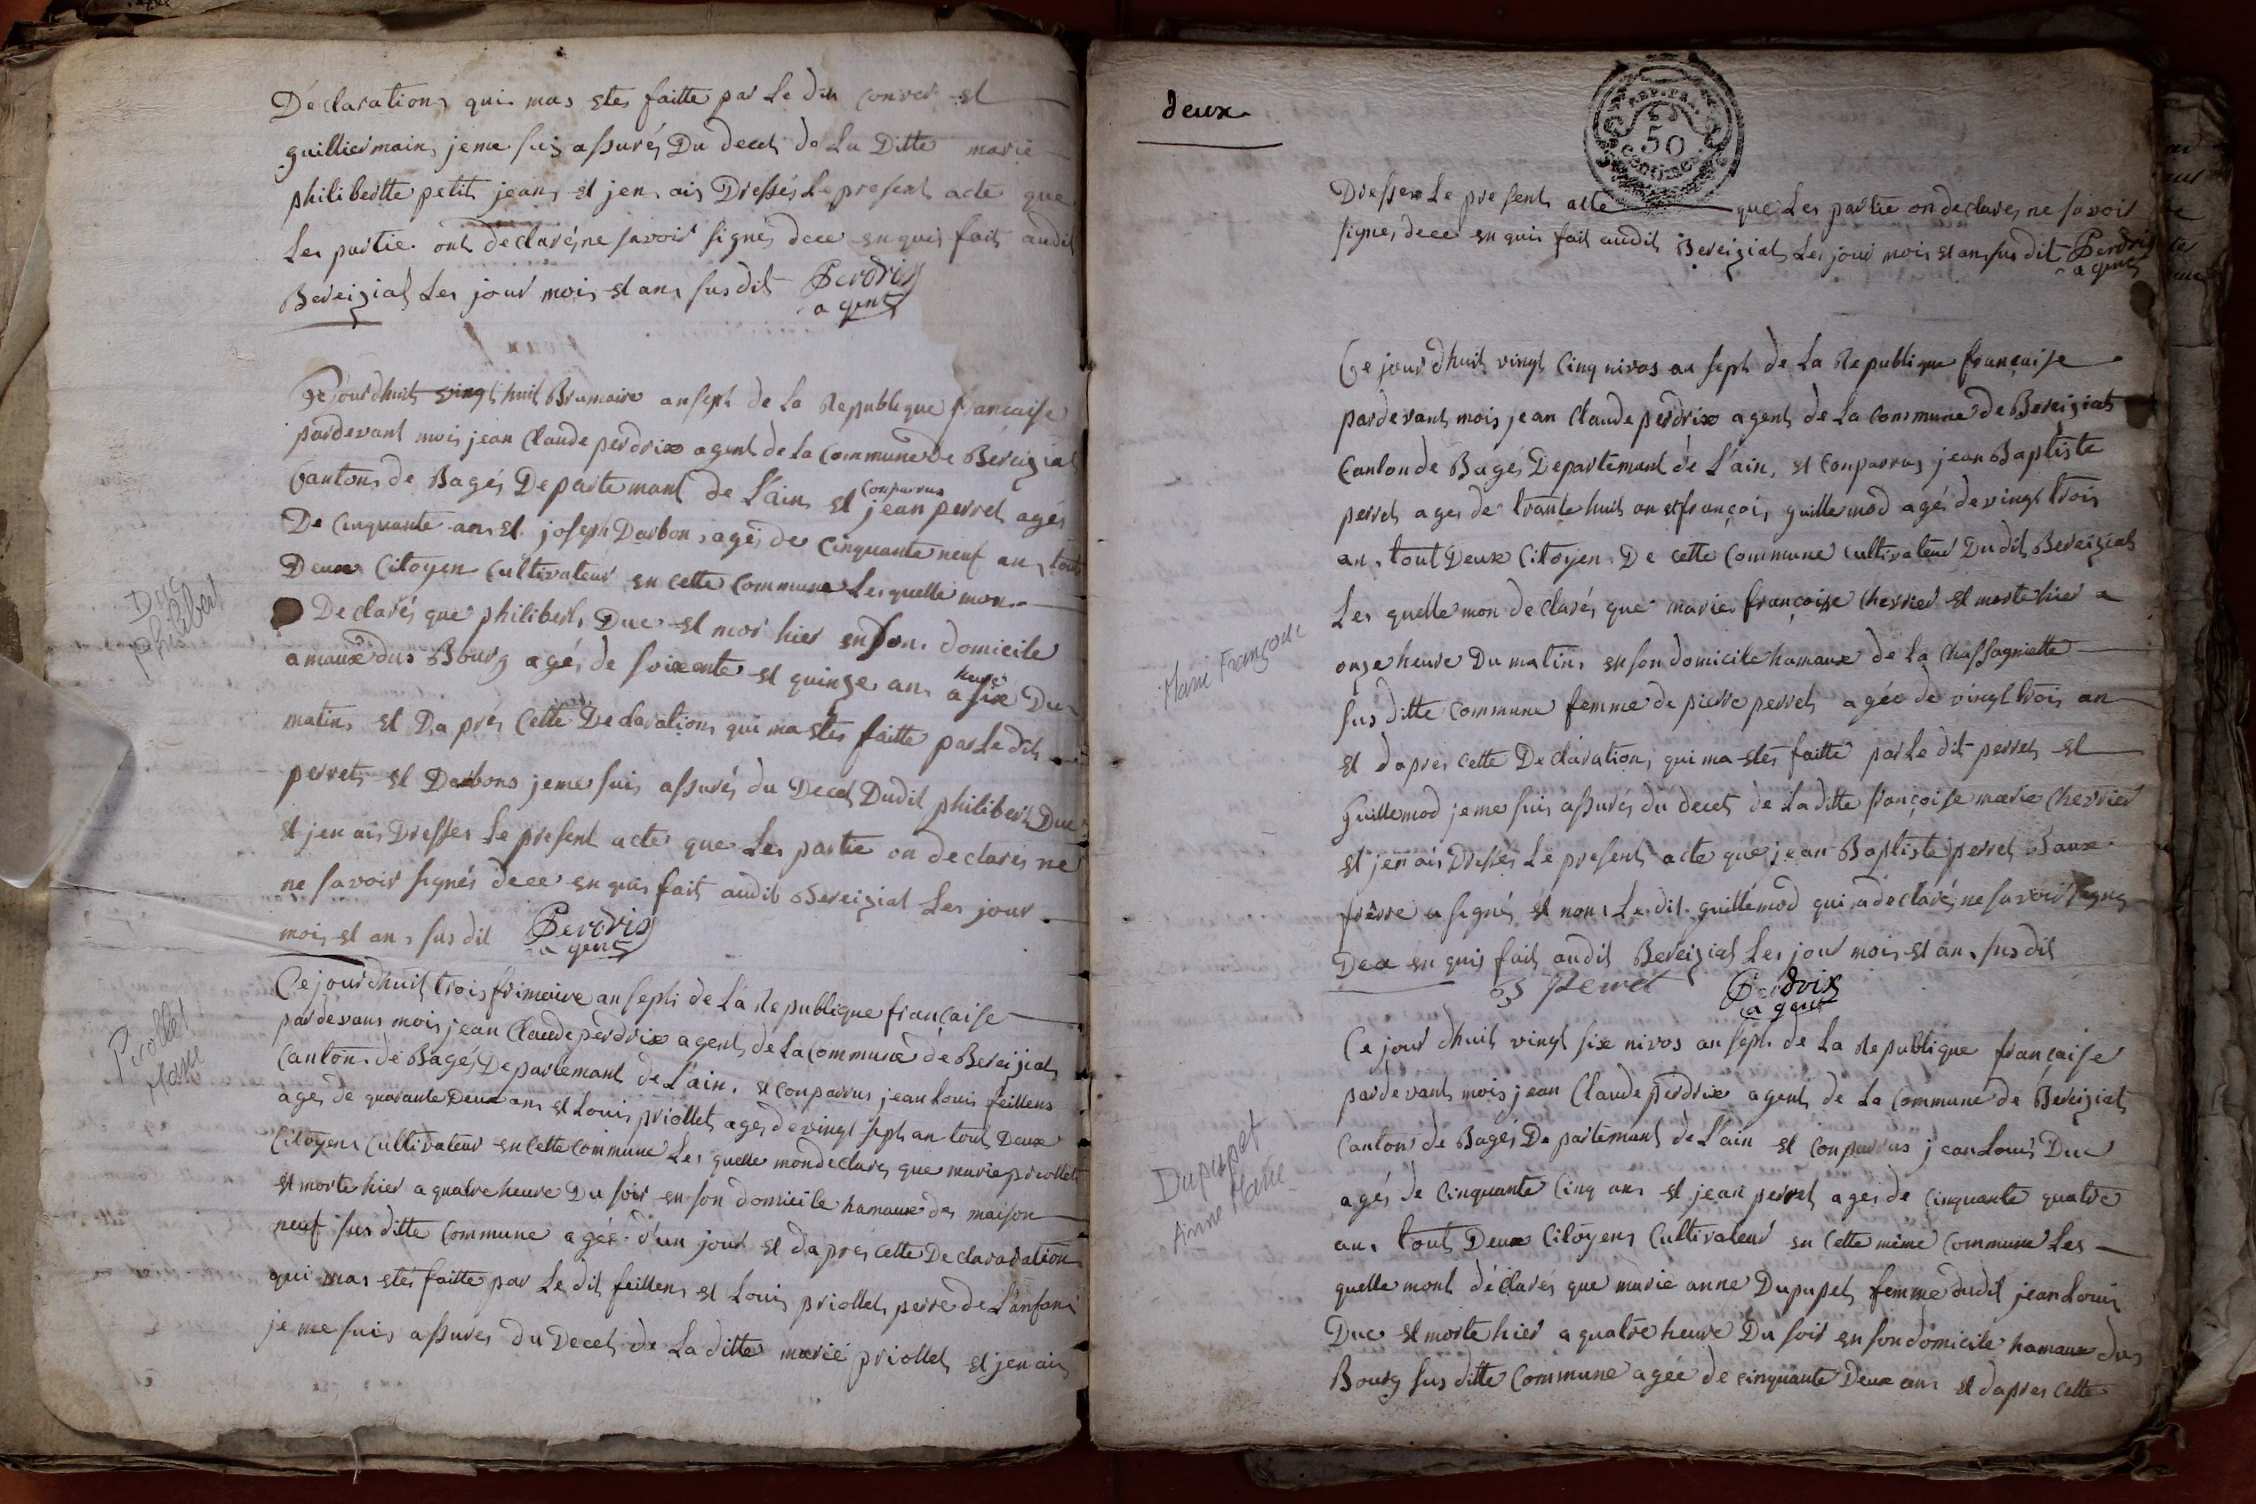 Déclaration qui mas etes faitte par le dit conver et
guilliermain, jeme suis assurés Du decet de La Ditte marie
philibertte petit jean, et jen ais Dressés Le present acte que
Les partie ont declarés ne savoir signés dece enquis fait audit
Bereiziat Les jour mois et an susdit Perdrix
agent
Cejourdhuit vingt huit Brumaire an sept de La Republique francaise
pardevant mois jean Claude perdrix agent de La Commune De Bereiziat
Canton de Bagés Departemant de L'ain et conparrus jean perret agés
De cinquante an et joseph Darbon agés de cinquante neuf an tout
Deux Citoyen Cultivateur en cette commune Lesquelle mon
Duc
philibert
Declarés que philibert Duc et mor hier en son domicile
amaux dus Bourg agés de soixente et quinze an a six heure Du
matin et Daprés cette Declaration qui ma etes faitte par Le dit
perret et Darbons jeme suis assurés du Decet Dudit philibert Duc
et jen ais Dresses Le present acte que Les partie on declares ne
ne savoir signés dece enquis fait audit Bereiziat Les jour
mois et an susdit Perdrix
agent
Cejourdhuit trois frimaire an sept de La Republique francaise
Piollet
Marie
pardevant mois jean Claude perdrix agent de La Commune de Bereiziat
Canton de Bagés Departemant de L'ain et conparrus jean Louis feillens
agés de quarante Deux ans et Louis priollet agés de vingt sept an tout Deux
Citoyen Cultivateur en cette commune Les quelle mon declares que marie priollet
et morte hier a quatre heure Du soir en son domicile hamaux des maison
neuf sus ditte Commune agée d'un jour et dapres cette Declaradation
qui mas etés faitte par Le dit feillen et Louis priollet perre de L'anfant
je me suis assurés du Decet de La ditte marie priollet et jen ais
deux
REP. FRA.
50
CENTIMES
Dresser Le present acte que Les partie on declares ne savoir
signer dece enquis fait audit Bereiziat Les jour mois et an susdit Perdrix
agent
Ce jourdhuit vingt cinq nivos an sept de La Republique francaise
pardevant mois jean Claude perdrix agent de La Commune de Bereiziat
Canton de Bagés Departemant de L'ain, et conparrus jean Baptiste
perret ages de trante huit an et françois guillemod agés de vingt trois
an tout Deux Citoyen De cette Commune Cultivateur Dudit Bereiziat
Les quelle mon declarés que marie françoise Chevrier et morte hier a
Marie Françoise
onze heure Du matin en son domicile hamaux de La Chassagniette
sus ditte commune femme de pierre perret agée de vingt trois an
et dapres cette Declaration qui ma etés faitte par Le dit perret et
Guillemod jeme suis assurés du decet de La ditte françoise marie Chevrier
et jen ais Dressés Le present acte que jean Baptiste perret Baux
frêrre a signés et non Le dit guillemod qui a declarés ne savoir signer
Dece enquis fait audit Bereiziat Les jour mois et an susdit
perret Perdrix
agent
Ce jour dhuit vingt six nivos an sept de La Republique française
pardevant mois jean Claude perdrix agent de La Commune de Bereiziat
Dupupet
Anne Marie
Canton de Bagés Departemant de L'ain et conparrus jean Louis Duc
agés de cinquante cinq an et jean perret ages de cinquante quatre
an tout Deux Citoyen Cultivateur en cette même commune Les
quelle mont déclarés que marie anne Dupupet femme dudit jean Louis
Duc et morte hier a quatre heure Du soir en son domicile hamaux dus
Bourg sus ditte Commune agée de cinquante Deux an et dapres cette